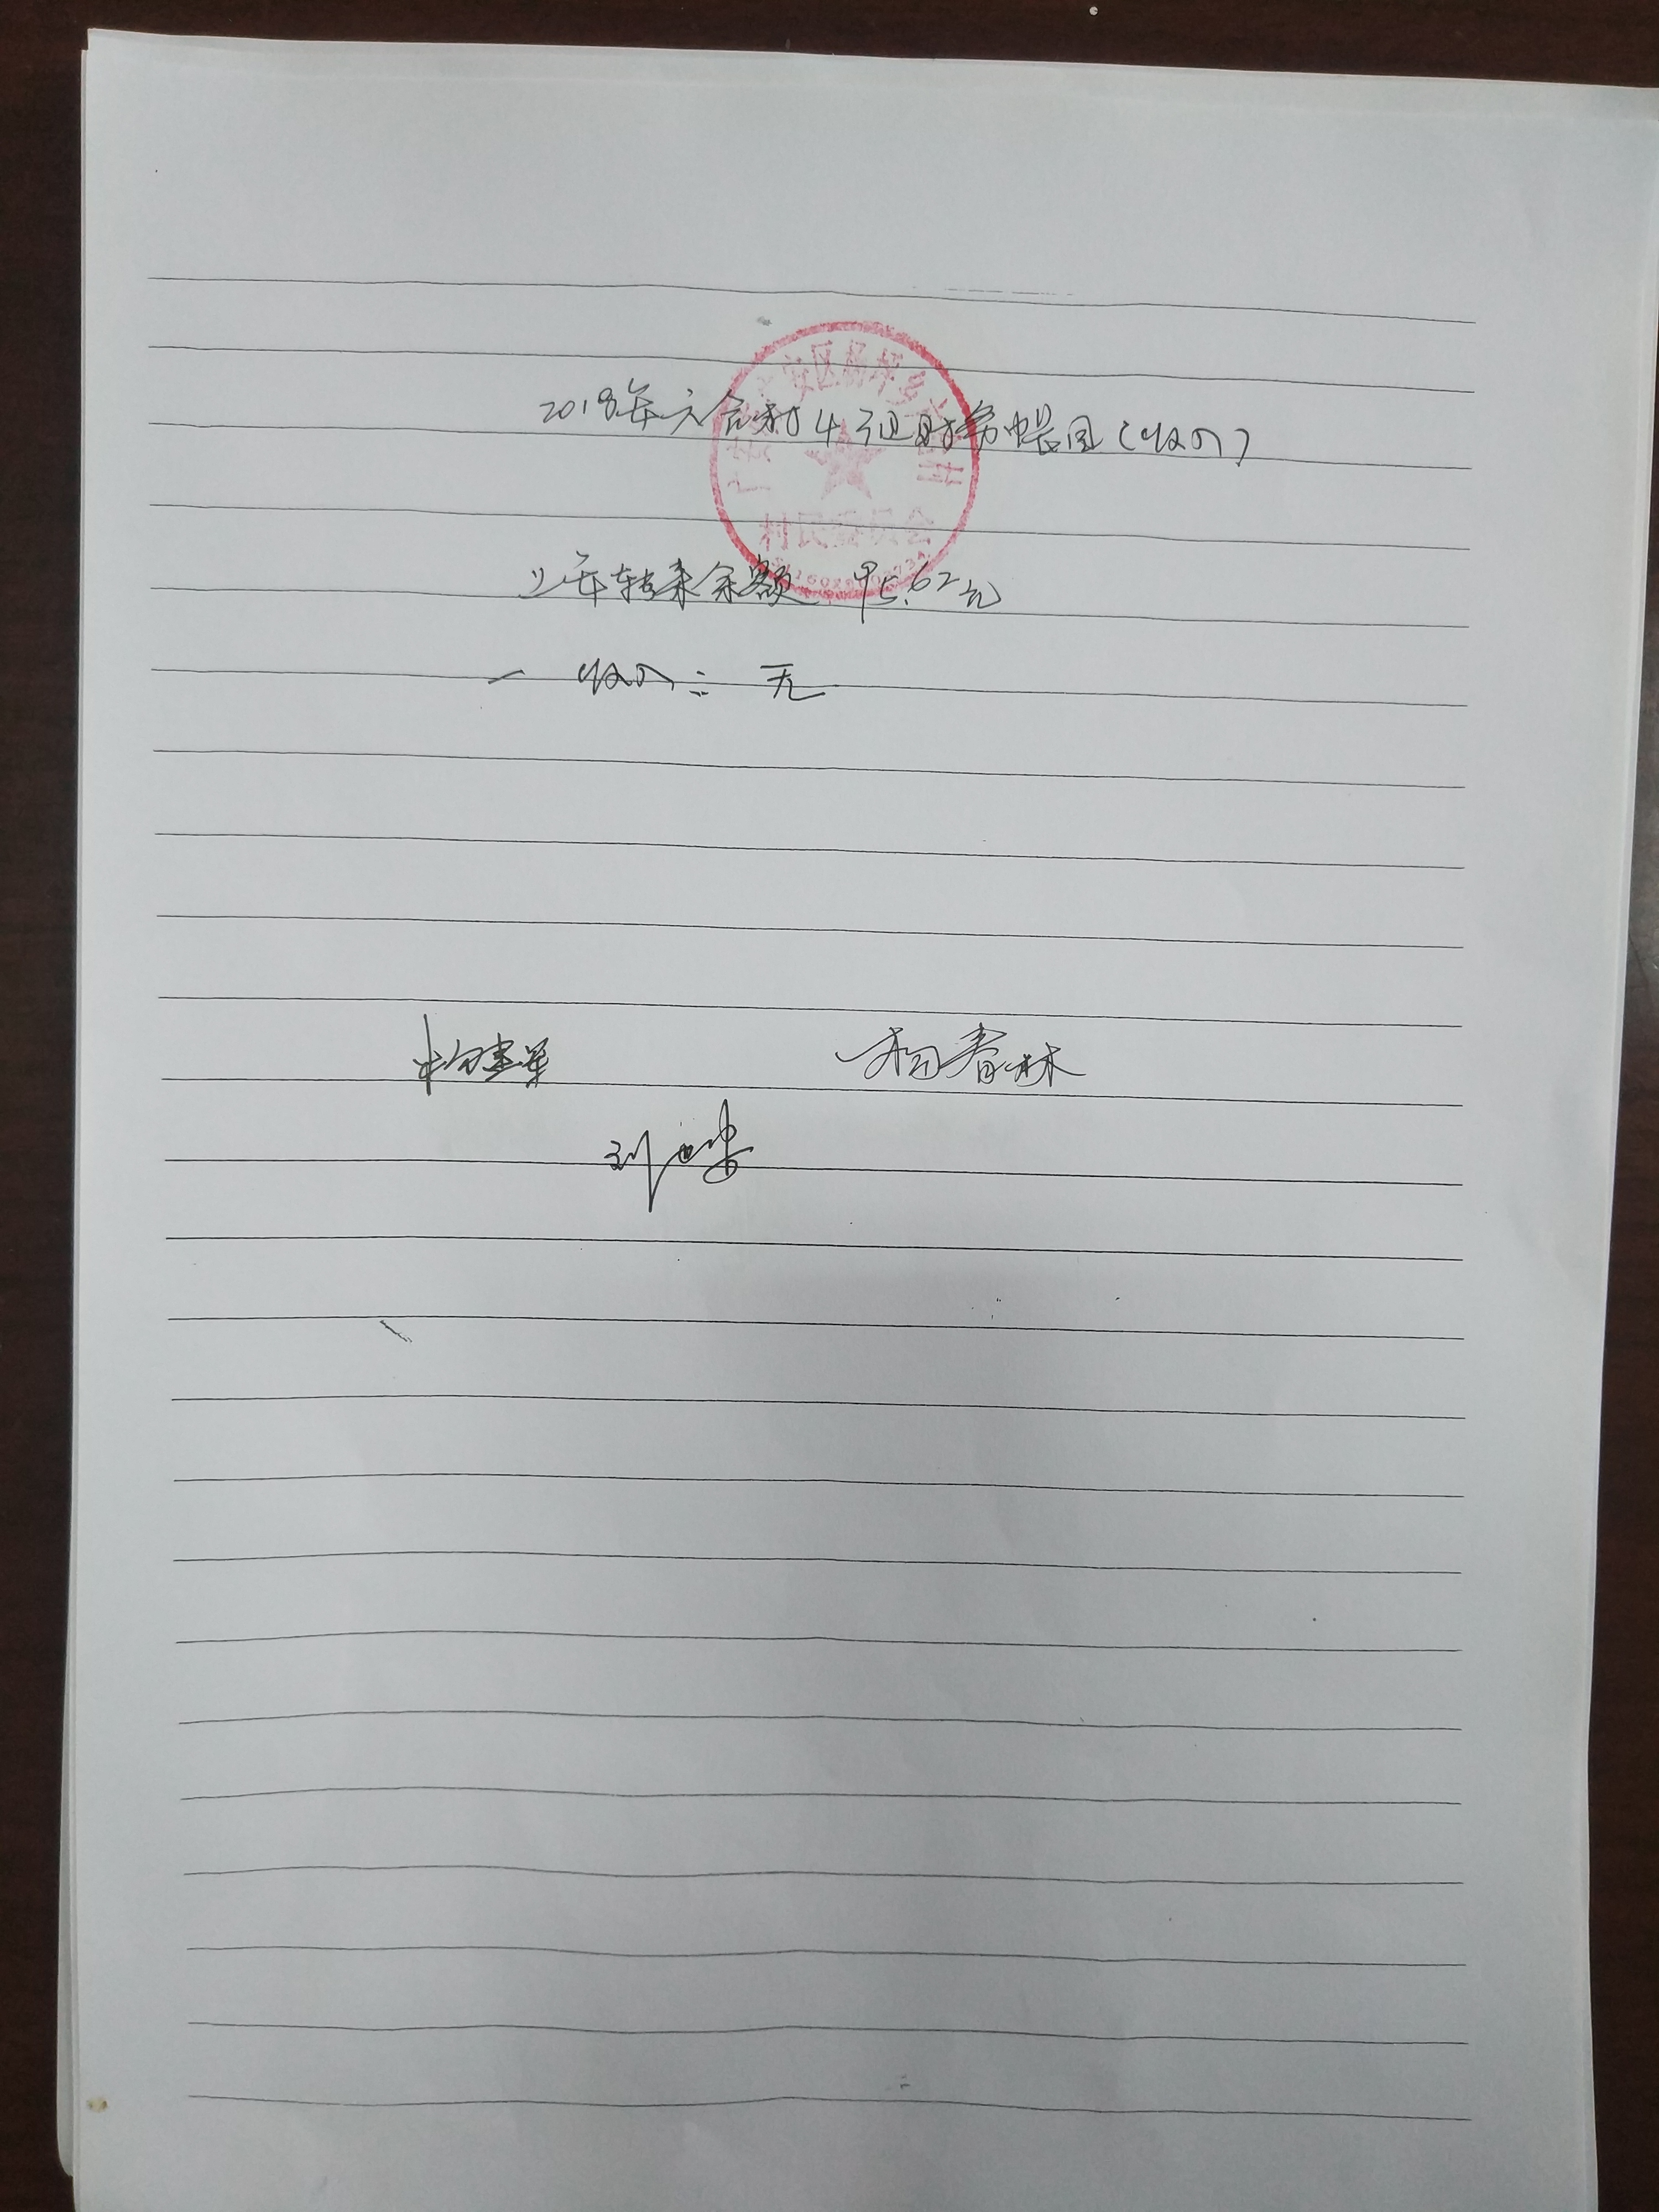 2018年六合村4组财务帐目(收入)
安区杨坪乡
村民委员会
上年转来余额 95.62元
一 收入: 无
杨建军 杨春林
刘